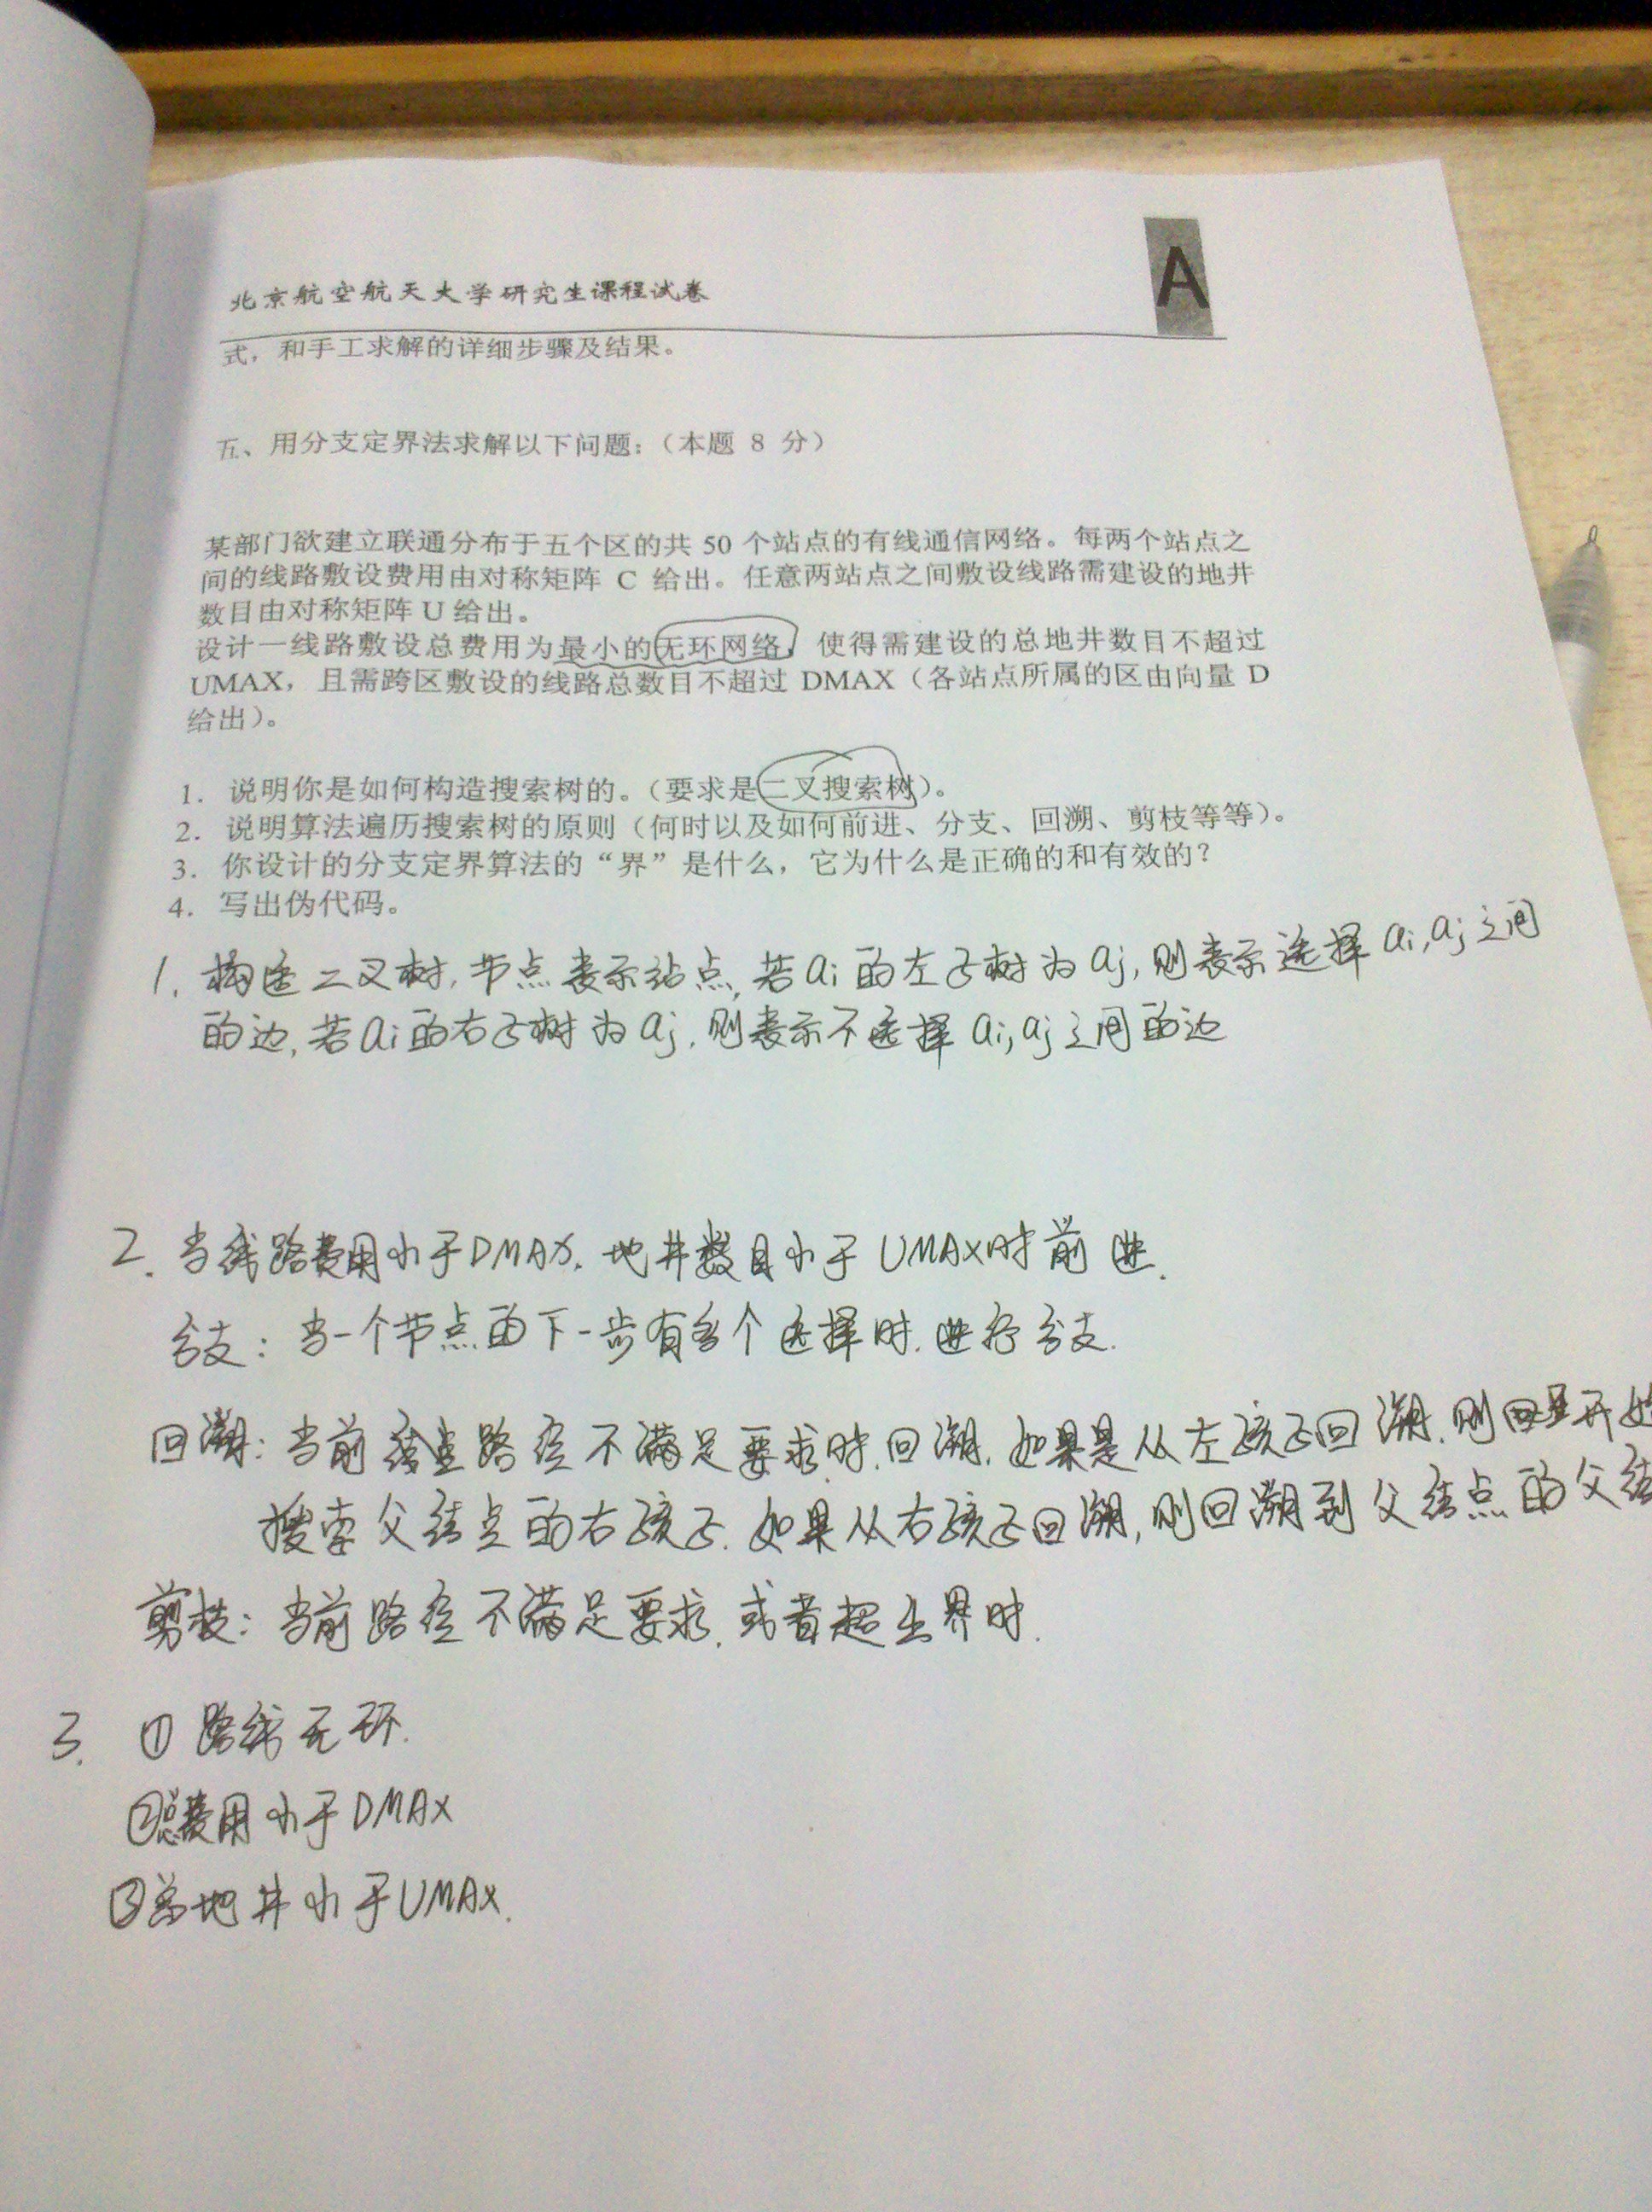 北京航空航天大学研究生课程试卷
A
式，和手工求解的详细步骤及结果。
五、用分支定界法求解以下问题：（本题 8 分）
某部门欲建立联通分布于五个区的共 50 个站点的有线通信网络。每两个站点之
间的线路敷设费用由对称矩阵 C 给出。任意两站点之间敷设线路需建设的地井
数目由对称矩阵 U 给出。
设计一线路敷设总费用为最小的无环网络，使得需建设的总地井数目不超过
UMAX，且需跨区敷设的线路总数目不超过 DMAX（各站点所属的区由向量 D
给出）。
1. 说明你是如何构造搜索树的。（要求是二叉搜索树）。
2. 说明算法遍历搜索树的原则（何时以及如何前进、分支、回溯、剪枝等等）。
3. 你设计的分支定界算法的“界”是什么，它为什么是正确的和有效的？
4. 写出伪代码。
1. 构造二叉树，节点表示站点，若ai的左子树为aj，则表示选择ai,aj之间
的边，若ai的右子树为aj，则表示不选择ai,aj之间的边
2. 当线路费用小于DMAX，地井数目小于UMAX时前进.
分支：当一个节点的下一步有多个选择时，进行分支.
回溯：当前结点路径不满足要求时，回溯，如果是从左孩子回溯，则开始
搜索父结点的右孩子，如果从右孩子回溯，则回溯到父结点的父结
剪枝：当前路径不满足要求，或者超出界时.
3. ①路线无环.
②总费用小于DMAX
③总地井小于UMAX.